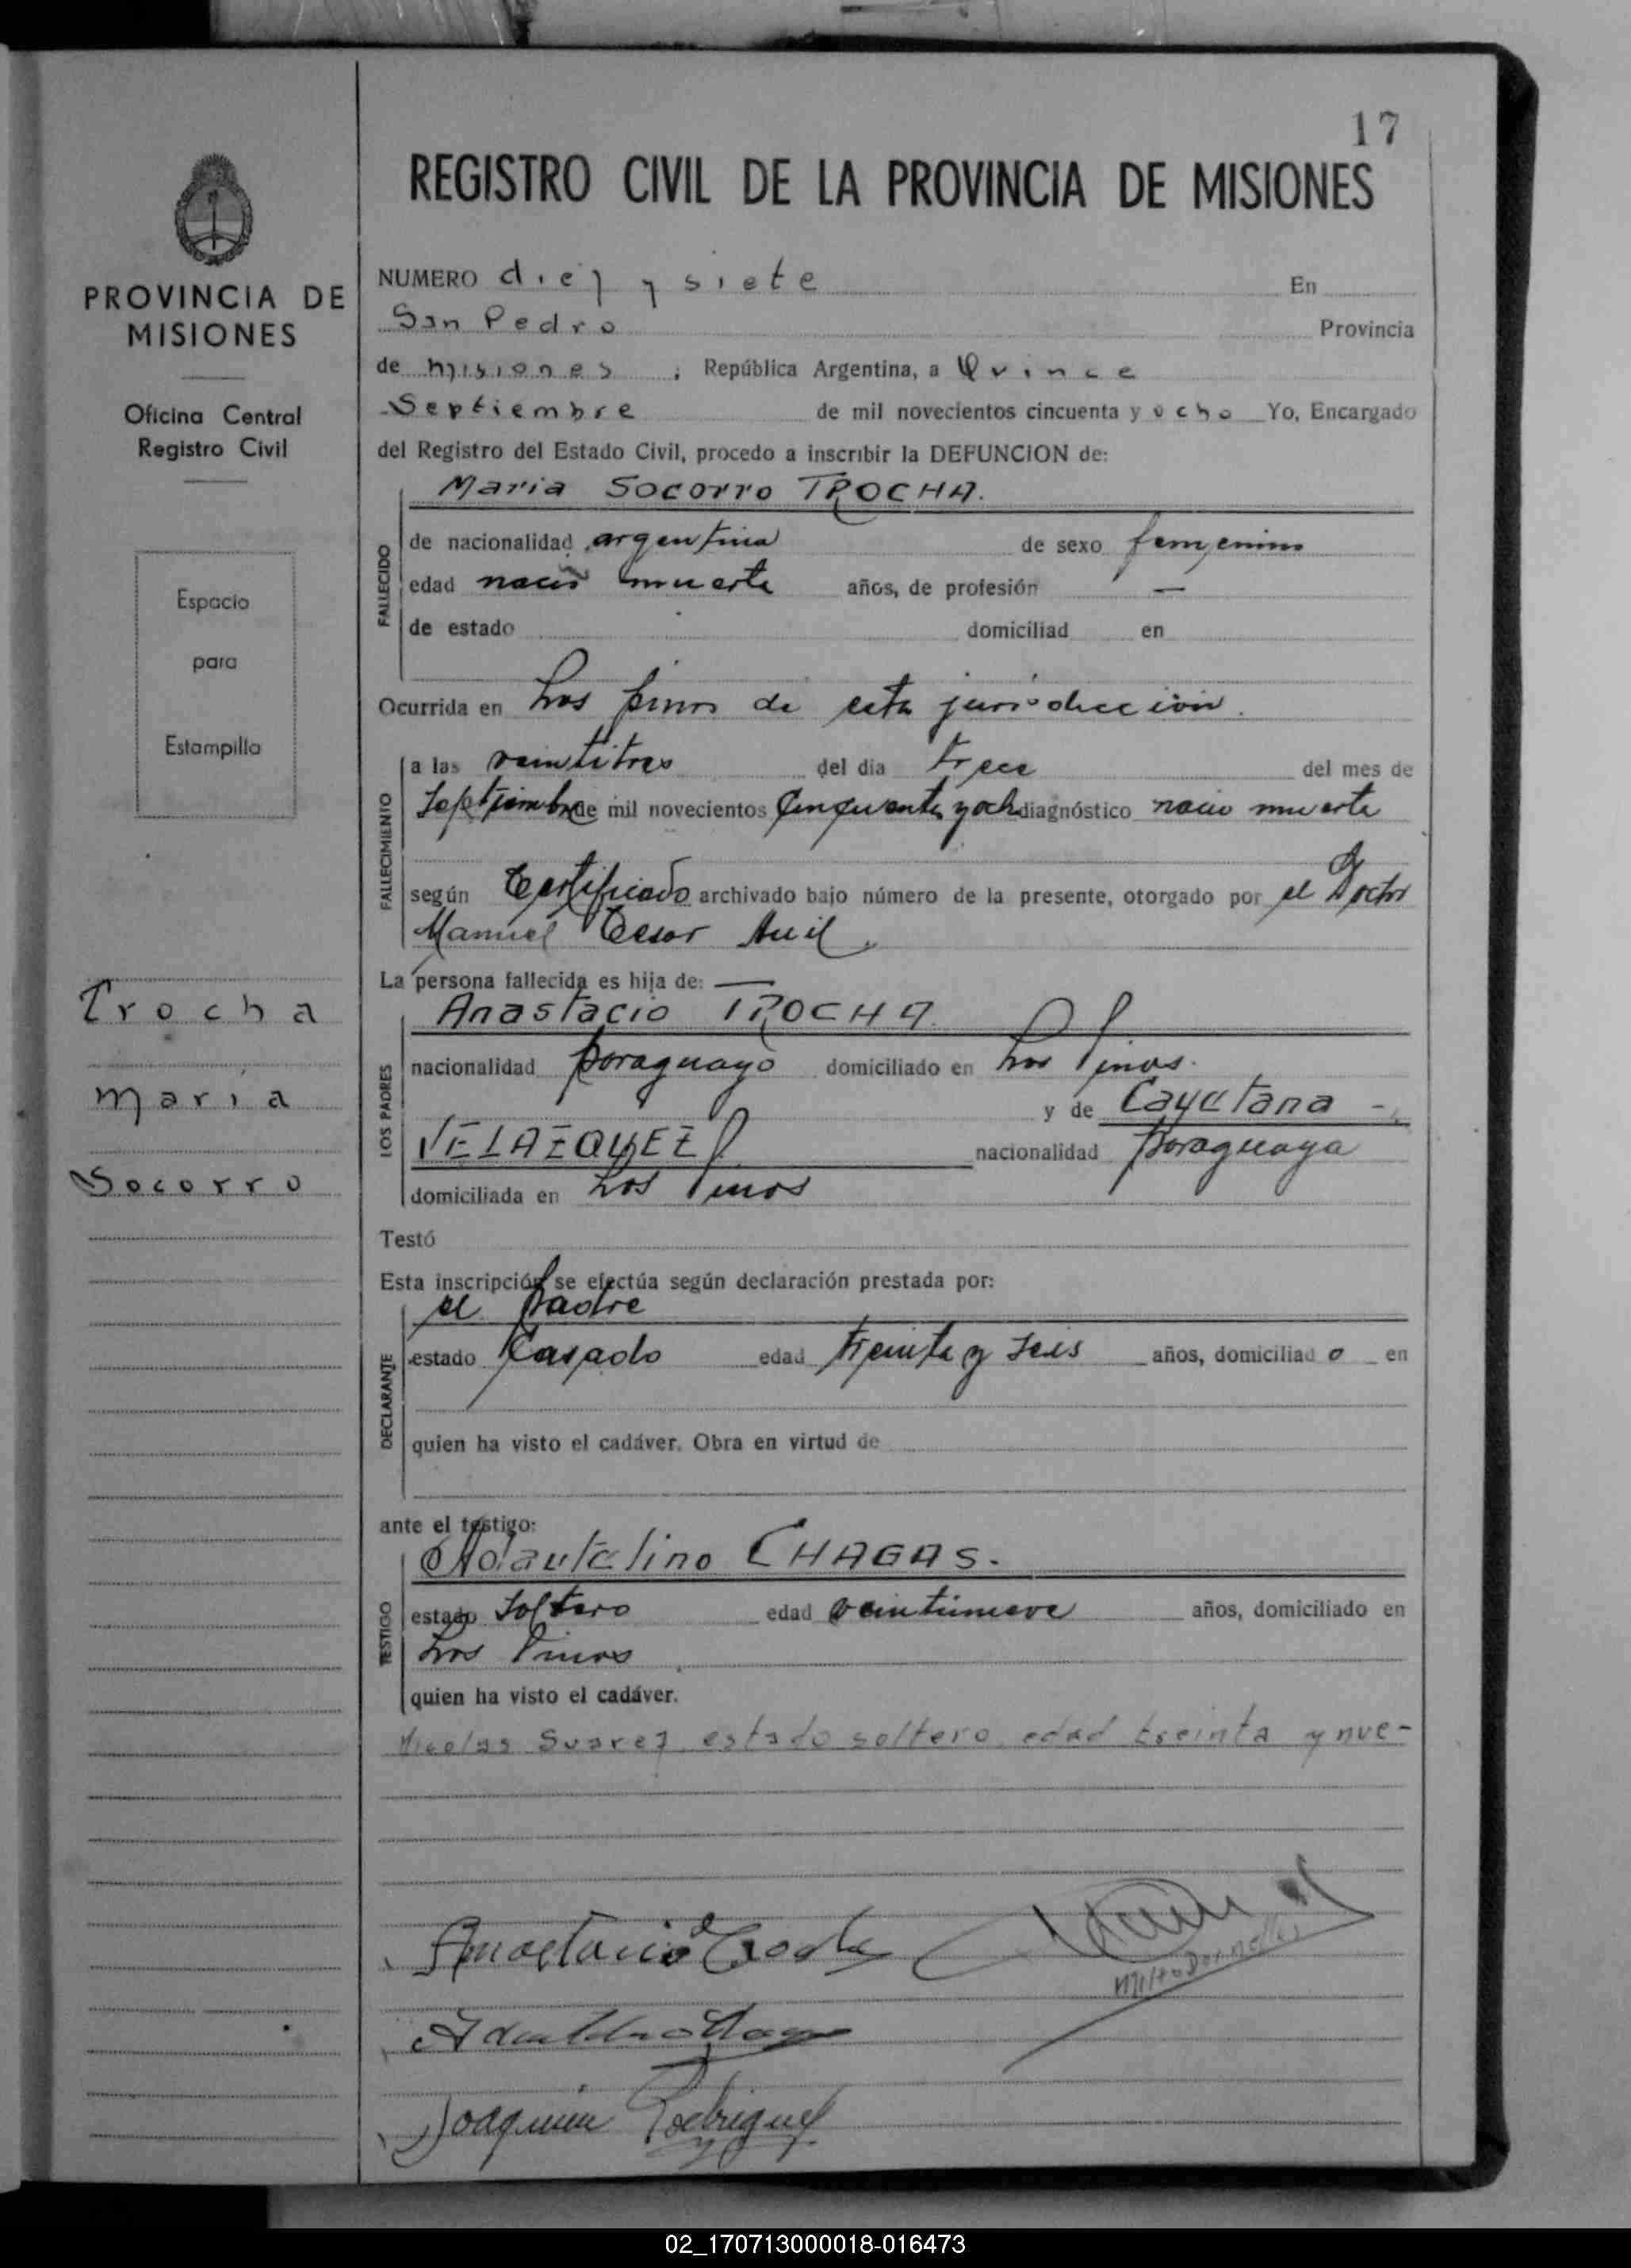 17
REGISTRO CIVIL DE LA PROVINCIA DE MISIONES
PROVINCIA DE
MISIONES
Oficina Central
Registro Civil
Espacio
para
Estampilla
Trocha
Maria
Socorro
NUMERO diez y siete En
San Pedro Provincia
de Misiones , República Argentina, a Quince
Septiembre de mil novecientos cincuenta y ocho Yo, Encargado
del Registro del Estado Civil, procedo a inscribir la DEFUNCION de:
Maria Socorro TROCHA.
FALLECIDO
de nacionalidad argentina de sexo femenino
edad nació muerta años, de profesión —
de estado domiciliad en
Ocurrida en Los pinos de esta jurisdiccion.
FALLECIMIENTO
a las veintitres del día trece del mes de
Septiembre de mil novecientos Cinquenta y ocho diagnóstico nacio muerta
según Certificado archivado bajo número de la presente, otorgado por el Doctor
Manuel Cesar
La persona fallecida es hija de: —
LOS PADRES
Anastacio TROCHA.
nacionalidad paraguayo domiciliado en Los Pinos.
y de Cayetana -
VELAZQUEZ nacionalidad paraguaya
domiciliada en Los Pinos
Testó
Esta inscripción se efectúa según declaración prestada por:
DECLARANTE
el padre
estado Casado edad treinta y seis años, domiciliado en
quien ha visto el cadáver. Obra en virtud de
ante el testigo:
TESTIGO
Adautelino CHAGAS.
estado Soltero edad veintinueve años, domiciliado en
Los Pinos
quien ha visto el cadáver.
Nicolas Suarez estado soltero edad treinta y nue-
Anastacio Trocha
Joaquin Rodriguez
02_170713000018-016473